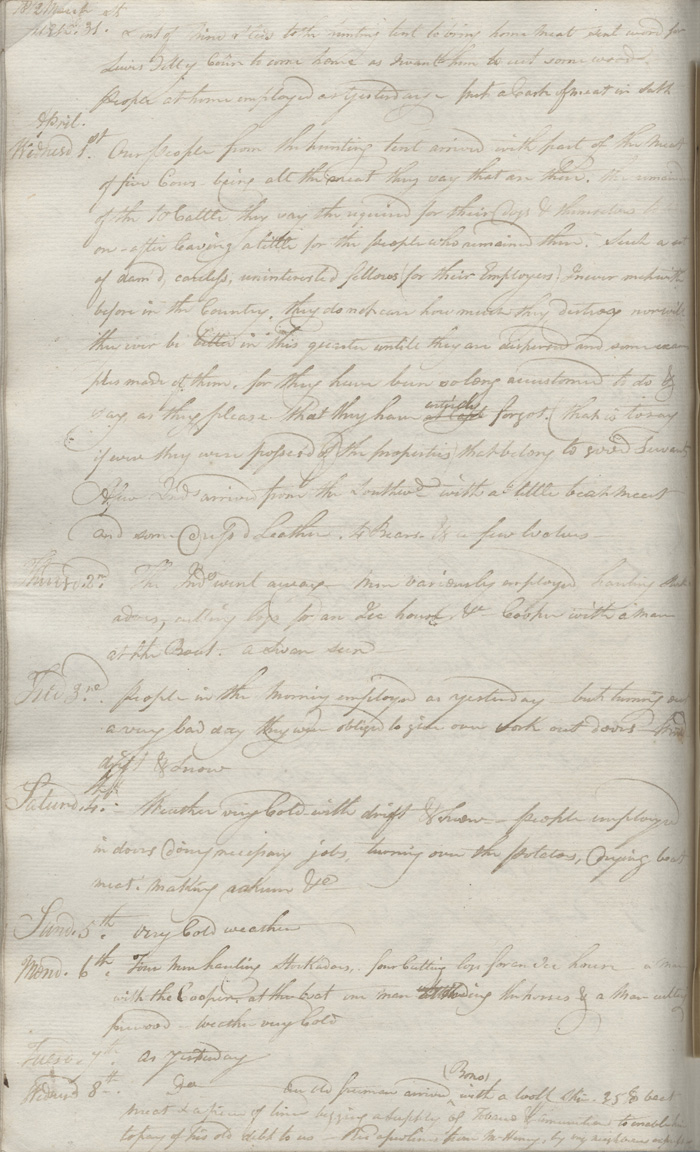 1812 March
31st. & out of mine & tied to the hunting tent to bring home meat sent word for
Lewis to come home as I want him to cut some wood.
People at home employed as yesterday put a Cask of meat in Salt
April.
Wednesd 1st. Our people from the hunting tent arrived with part of the meat
of five Cows being all the meat they say that are there. the remain
of the 10 Cattle they say the required for their Dogs & themselves
on after leaving a little for the people who remained there. Such a set
of damd, careless, uninterested fellows (for their Employers) I never met with
before in the Country, they do not care how much they destroy nor will
they ever be better in this quarter untill they are dispersed and some exam
ples made of them. for they have been so long accustomed to do &
say as they please that they have entirely forgot. (that is to say
if ever they were possessed of the properties) that belong to good Servants
A few Inds arrived from the Southwd with a little beat meat
and some Dressd Leather. 4 Bears. & a few Wolves
Thurs. 2d. The Inds went away men variously employed hauling Stock
adoes, cutting logs for an Ice house &c Cooper with a man
at the Boat. a Swan seen
Frid 3rd. People in the morning employed as yesterday but turning out
a very bad day they were obliged to give over work out doors
drift & Snow
Saturd. 4th. Weather very Cold with drift & Snow people employed
in doors doing necessary jobs, turning over the potatoes, drying beat
meat. making oakum &c
Sund. 5th. very Cold weather
Mond. 6th. Four Men hauling Stockadoes, four Cutting logs for an Ice house a man
with the Cooper at the boat one man attending the horses & a Man cutting
firewood weather very Cold
Tuesd. 7th. as yesterday
Wednesd 8th. Do (Bono)
freeman arrived with a wolf skin. 35 lb beat
meat & a piece of line begging a supply of & Ammunition to enable him
to pay of his old debt to us